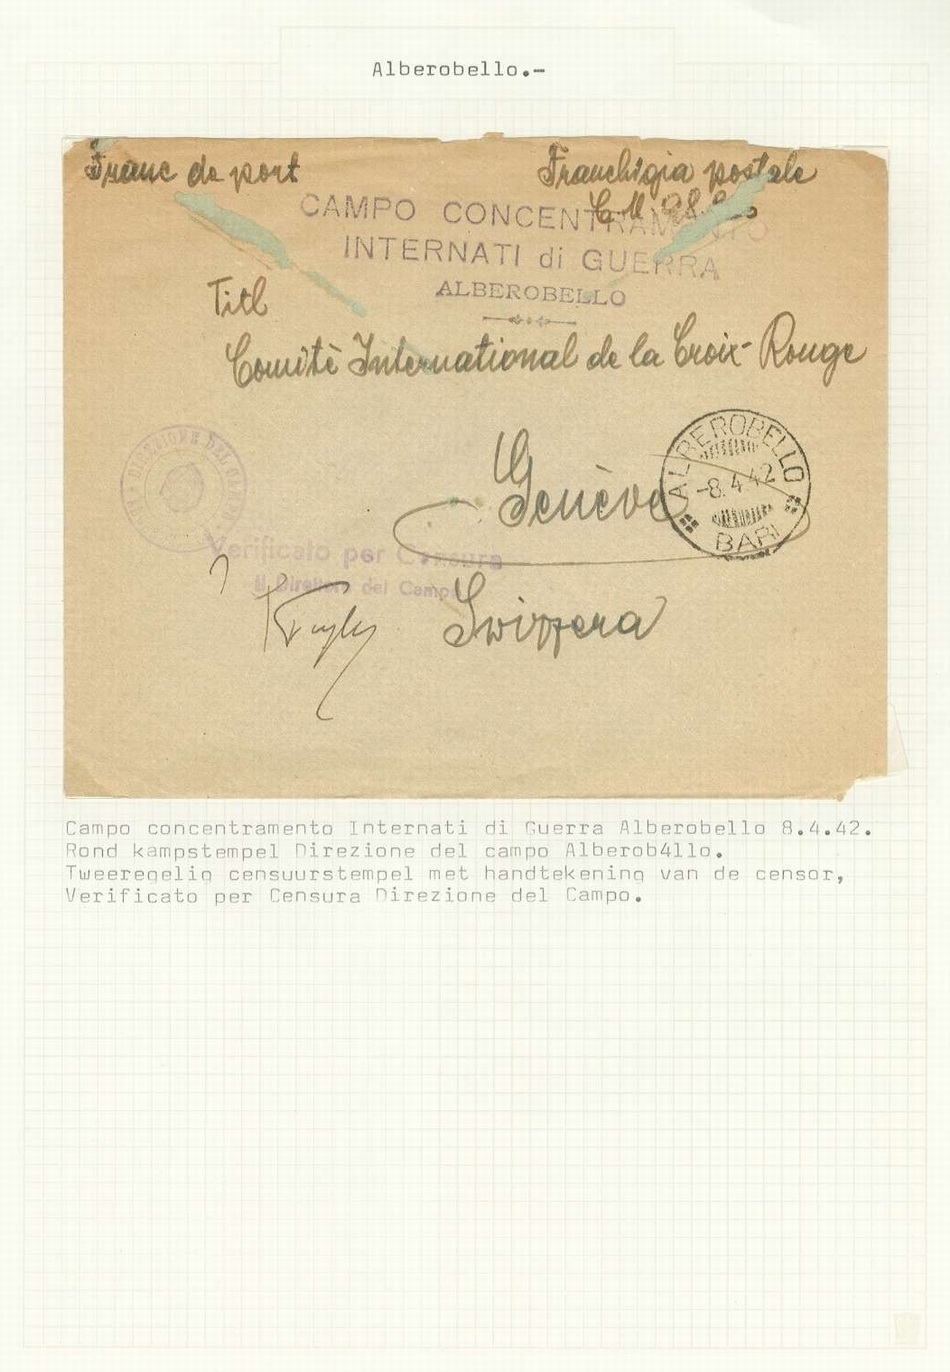 Alberobello.-
Franc de port
Franchigia postale
CAMPO CONCENTRAMENTO
INTERNATI di GUERRA
ALBEROBELLO
Titl
Comitè International de la Croix-Rouge
Genève
ALBEROBELLO
-8.4.42
BARI
DIREZIONE DEL
Verificato per Censura
Il Direttore del Campo
Svizzera
Campo concentramento Internati di Guerra Alberobello 8.4.42.
Rond kampstempel Direzione del campo Alberob4llo.
Tweeregelig censuurstempel met handtekening van de censor,
Verificato per Censura Direzione del Campo.